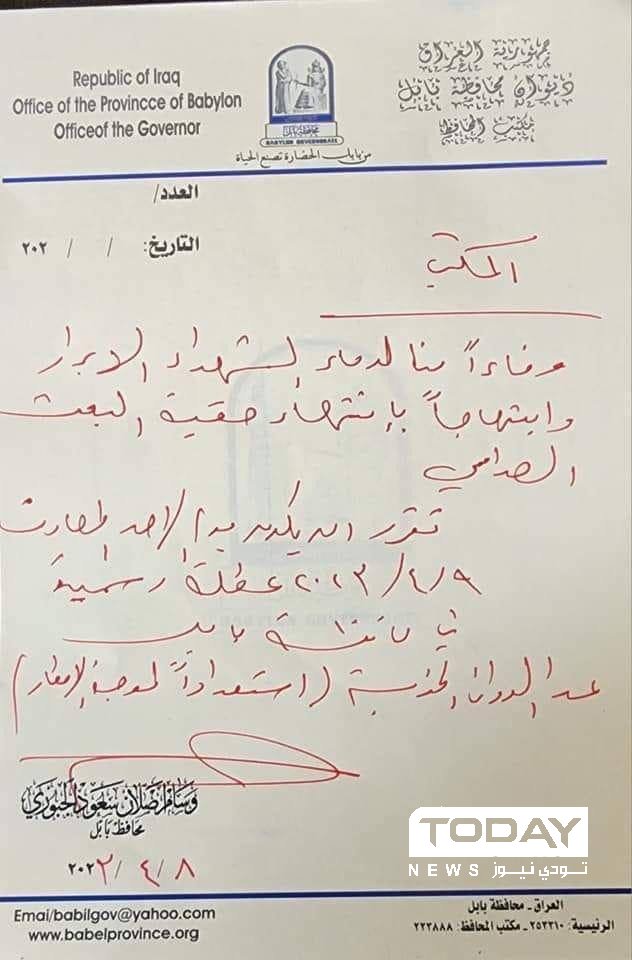 Republic of Iraq
Office of the Provincce of Babylon
Officeof the Governor
محافظة بابل
BABYLON GOVERNORATE
من بابل الحضارة تصنع الحياة
جمهورية العراق
ديوان محافظة بابل
مكتب المحافظ
العدد/
التاريخ: / / ٢٠٢
المكتب
وفاءاً منا لدماء الشهداء الابرار
وابتهاجاً بإنتهاء حقبة البعث
الصدامي
تقرر ان يكون يوم الاحد المصادف
٢٠٢٣/٤/٩ عطلة رسمية
في محافظة بابل
عدا الدوائر الخدمية (استعداداً لوجبة الإفطار)
وسام أصلان سعود الجبوري
محافظ بابل
٢٠٢٣/٤/٨
TODAY
NEWS تـودي نيـوز
Emai/babilgov@yahoo.com
www.babelprovince.org
العراق - محافظة بابل
الرئيسية: ٢٥٣٣١٠ - مكتب المحافظ: ٢٢٣٨٨٨